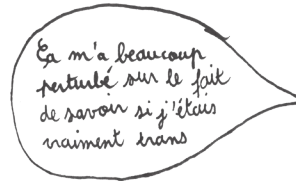 Ça m'a beaucoup
perturbé sur le fait
de savoir si j'étais
vraiment trans